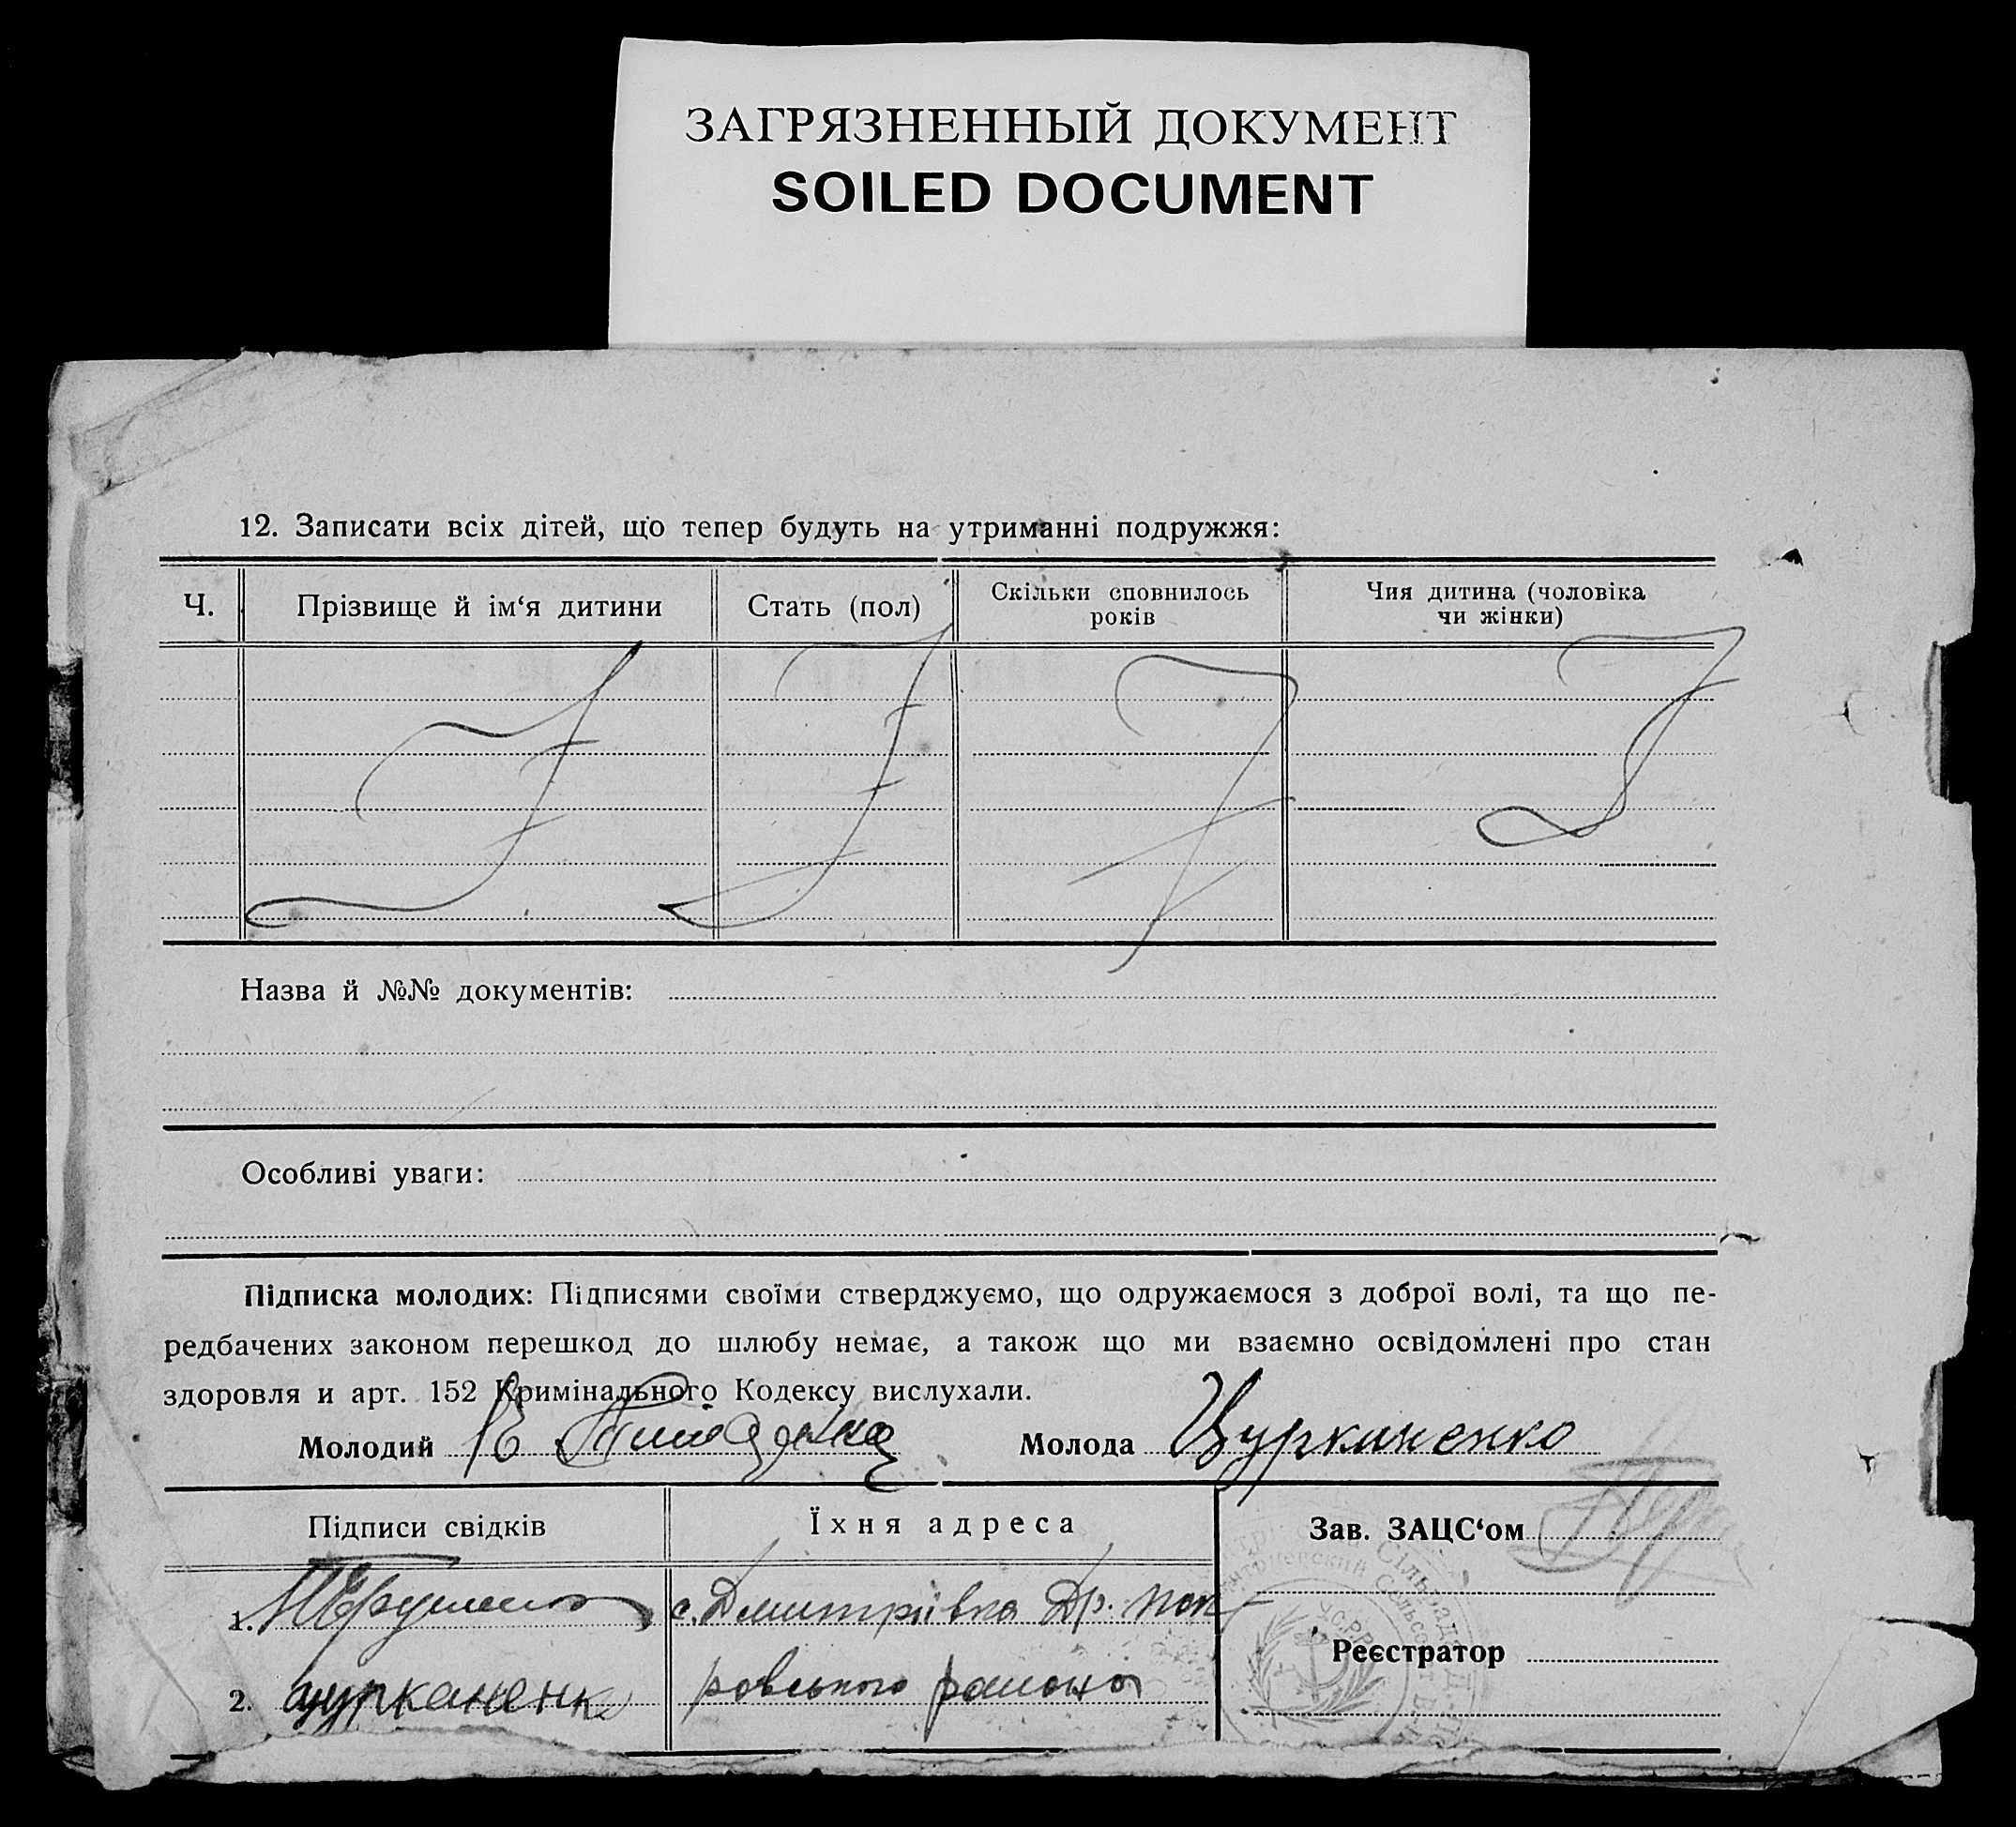 ЗАГРЯЗНЕННЫЙ ДОКУМЕНТ
SOILED DOCUMENT
12. Записати всіх дітей, що тепер будуть на утриманні подружжя:
Ч. Прізвище й ім‘я дитини Стать (пол) Скільки сповнилось років Чия дитина (чоловіка чи жінки)
Назва й №№ документів:
Особливі уваги:
Підписка молодих: Підписями своїми стверджуємо, що одружаємося з доброї волі, та що пе-
редбачених законом перешкод до шлюбу немає, а також що ми взаємно освідомлені про стан
здоровля и арт. 152 Кримінального Кодексу вислухали.
Молодий Молода Цурканенко
Підписи свідків Їхня адреса Зав. ЗАЦС‘ом
1. с. Дмитрівка
Реєстратор
2. Цурканенко ровського района
У.С.Р.Р.